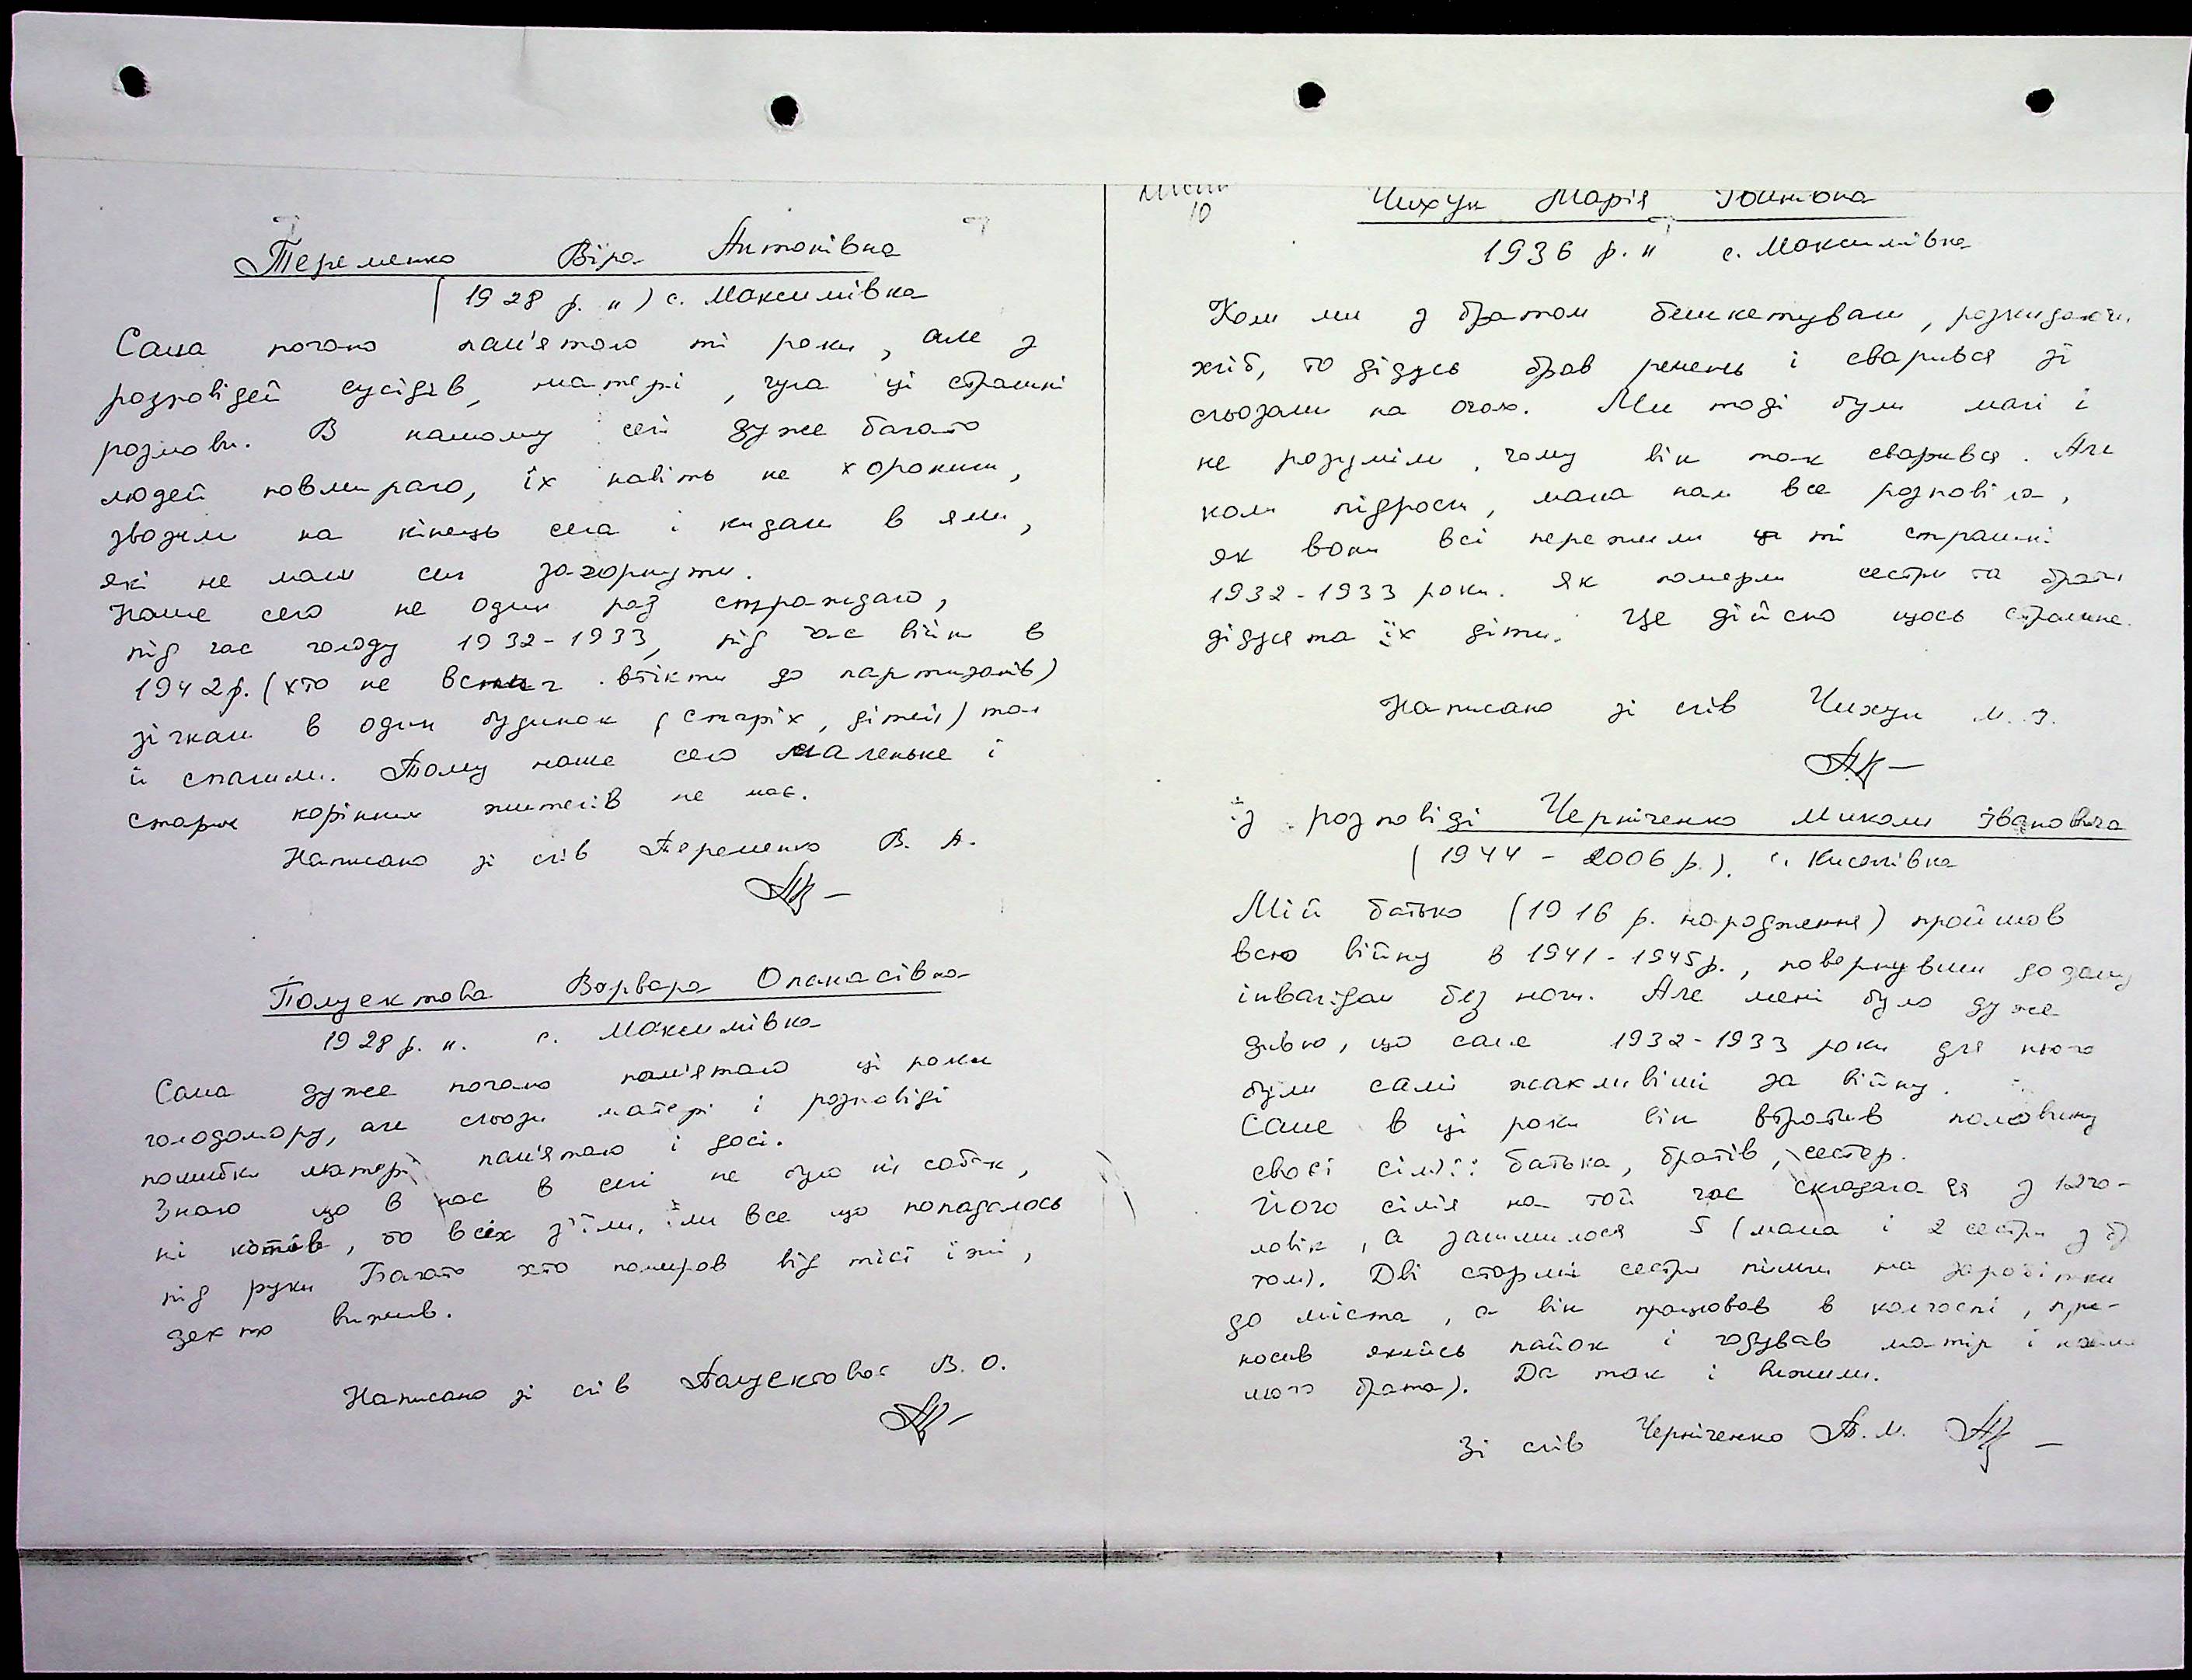 Теременко Віра Антонівна
(1928 р. н) с. Максимівка
Сама погано пам'ятаю ті роки, але з
розповідей сусідів, матері, чула ці страшні
розмови. В нашому селі дуже багато
людей повмирало, їх навіть не хоронили,
звозили на кінець села і кидали в ями,
які не мали сил загорнути.
Наше село не один раз страждало,
під час голоду 1932-1933, під час війни в
1942р. (хто не встиг втікти до партизанів)
зігнали в один будинок (старіх, дітей) там
й спалили. Тому наше село маленьке і
старих корінних жителів не має.
Написано зі слів Теременко В. А.
Полуектова Варвара Опанасівна
1928 р. н. с. Максимівка
Сама дуже погано пам'ятаю ці роки
голодомору, але сльози матері і розповіді
пошибки матері пам'ятаю і досі.
Знаю що в нас в селі не було ні собак,
ні котів, бо всіх з'їли, їли все що попадалось
під руки Багато хто помирав від тієї їжі,
дехто вижив.
Написано зі слів Полуектової В. О.
10
Чихун Марія Іванівна
1936 р. н с. Максимівка
Коли ми з братом бешкетували, розкидаючи
хліб, то дідусь брав ремень і сварився зі
сльозами на очах. Ми тоді були малі і
не розуміли, чому він так сварився. Але
коли підросли, мама нам все розповіла,
як вони всі пережили ті страшні
1932-1933 роки. Як померли сестри та брати
дідуся та їх діти. Це дійсно щось страшне.
Написано зі слів Чихун М. І.
із розповіді Черніченко Миколи Івановича
(1944 - 2006 р.). с. Киселівка
Мій батько (1916 р. народження) пройшов
всю війну в 1941-1945р., повернувши додому
інвалідом без ноги. Але мені було дуже
дивно, що саме 1932-1933 роки для нього
були самі жахливіші за війну.
Саме в ці роки він втратив половину
своєї сім'ї: батька, братів, сестер.
Його сім'я на той час складалася з 12 чо-
ловік, а залишилося 5 (мама і 2 сестри з
том). Дві старші сестри пішли на заробітки
до міста, а він працював в колгоспі, при-
носив якийсь пайок і годував матір і
шого брата). Да так і вижили.
Зі слів Черніченко Т. М.